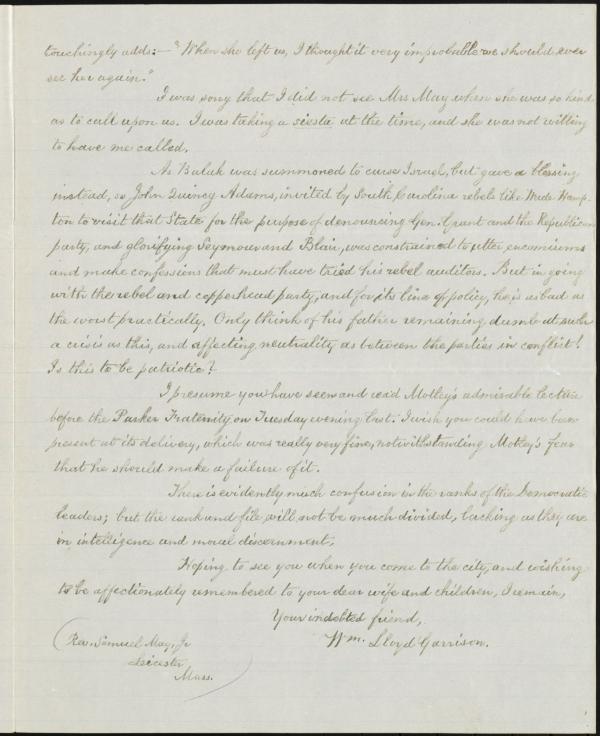 touchingly adds:— "When she left us, I thought it very improbable we should ever
see her again."
I was sorry that I did not see Mrs May when she was so kind
as to call upon us. I was taking a siesta at the time, and she was not willing
to have me called.
As Balak was summoned to curse Israel, but gave a blessing
instead, so John Quincy Adams, invited by South Carolina rebels like Wade Hamp-
ton to visit that State for the purpose of denouncing Gen. Grant and the Republican
party, and glorifying Seymour and Blair, was constrained to utter encomiums
and make confessions that must have tried his rebel auditors. But in going
with the rebel and copperhead party, and for its line of policy, he is as bad as
the worst practically. Only think of his father remaining dumb at such
a crisis as this, and affecting neutrality as between the parties in conflict!
Is this to be patriotic?
I presume you have seen and read Motley's admirable lecture
before the Parker Fraternity on Tuesday evening last. I wish you could have been
present at its delivery, which was really very fine, notwithstanding Motley's fear
that he should make a failure of it.
There is evidently much confusion in the ranks of the Democratic
leaders; but the rank and file will not be much divided, lacking as they are
in intelligence and moral discernment.
Hoping to see you when you come to the city, and wishing
to be affectionately remembered to your dear wife and children, I remain,
Your indebted friend,
Wm. Lloyd Garrison.
Rev. Samuel May, Jr
Leicester,
Mass.